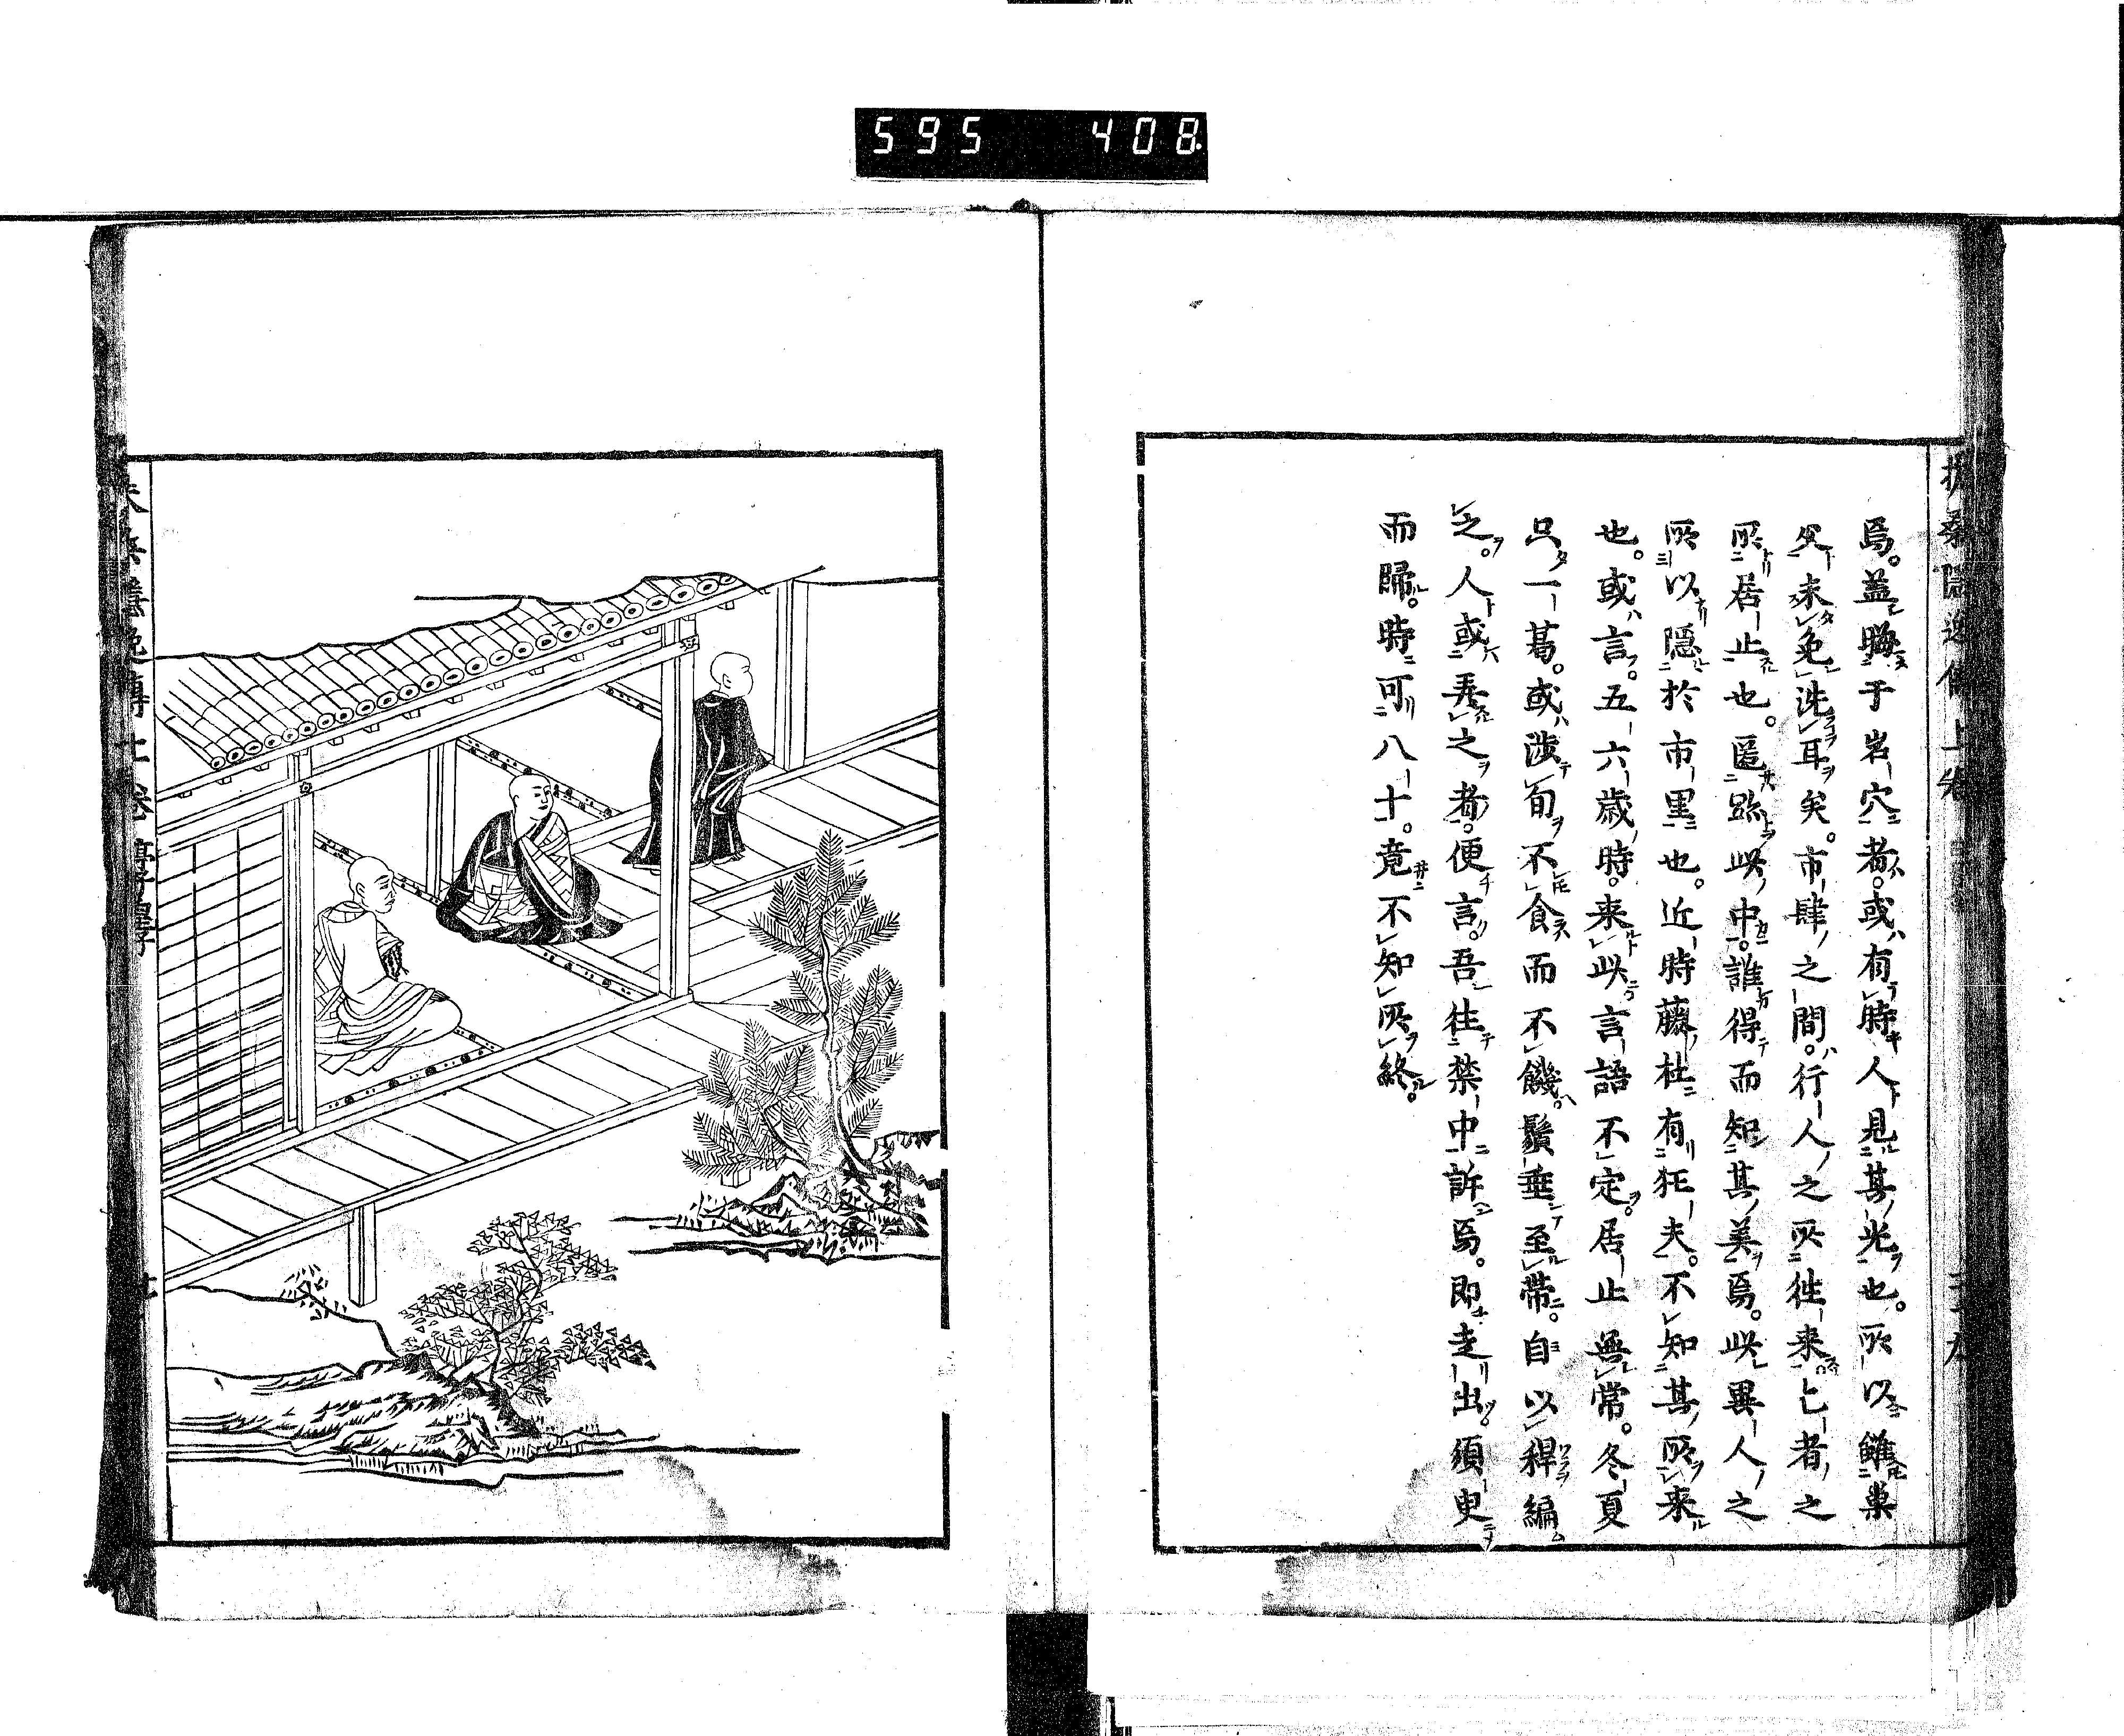 595 408
扶桑隠逸傳上卷
焉。蓋晦于岩穴者。或有時人見其光也。所以雖巣
父未免洗耳矣。市肆之間。行人之所徃来亡者之
所居止也。匿跡此中。誰得而知其美焉。此異人之
所以隠於市里也。近時藤杜有狂夫。不知其所来
也。或言。五六歳時。来此言語不定。居止無常。冬夏
只一葛。或渉旬不食而不饑。鬚垂至帯。自以稈編
之。人或弄之者。便言。吾往禁中訴焉。即走出。須臾
而歸。時可八十。竟不知所終。